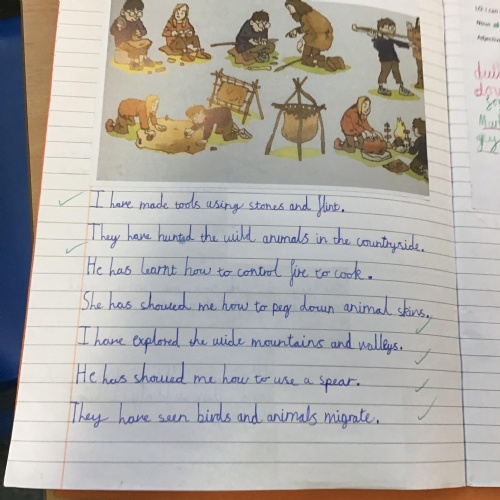 I have made tools using stones and flint.
They have hunted the wild animals in the countryside.
He has learnt how to control fire to cook.
She has showed me how to peg down animal skins.
I have explored the wide mountains and valleys.
He has showed me how to use a spear.
They have seen birds and animals migrate.